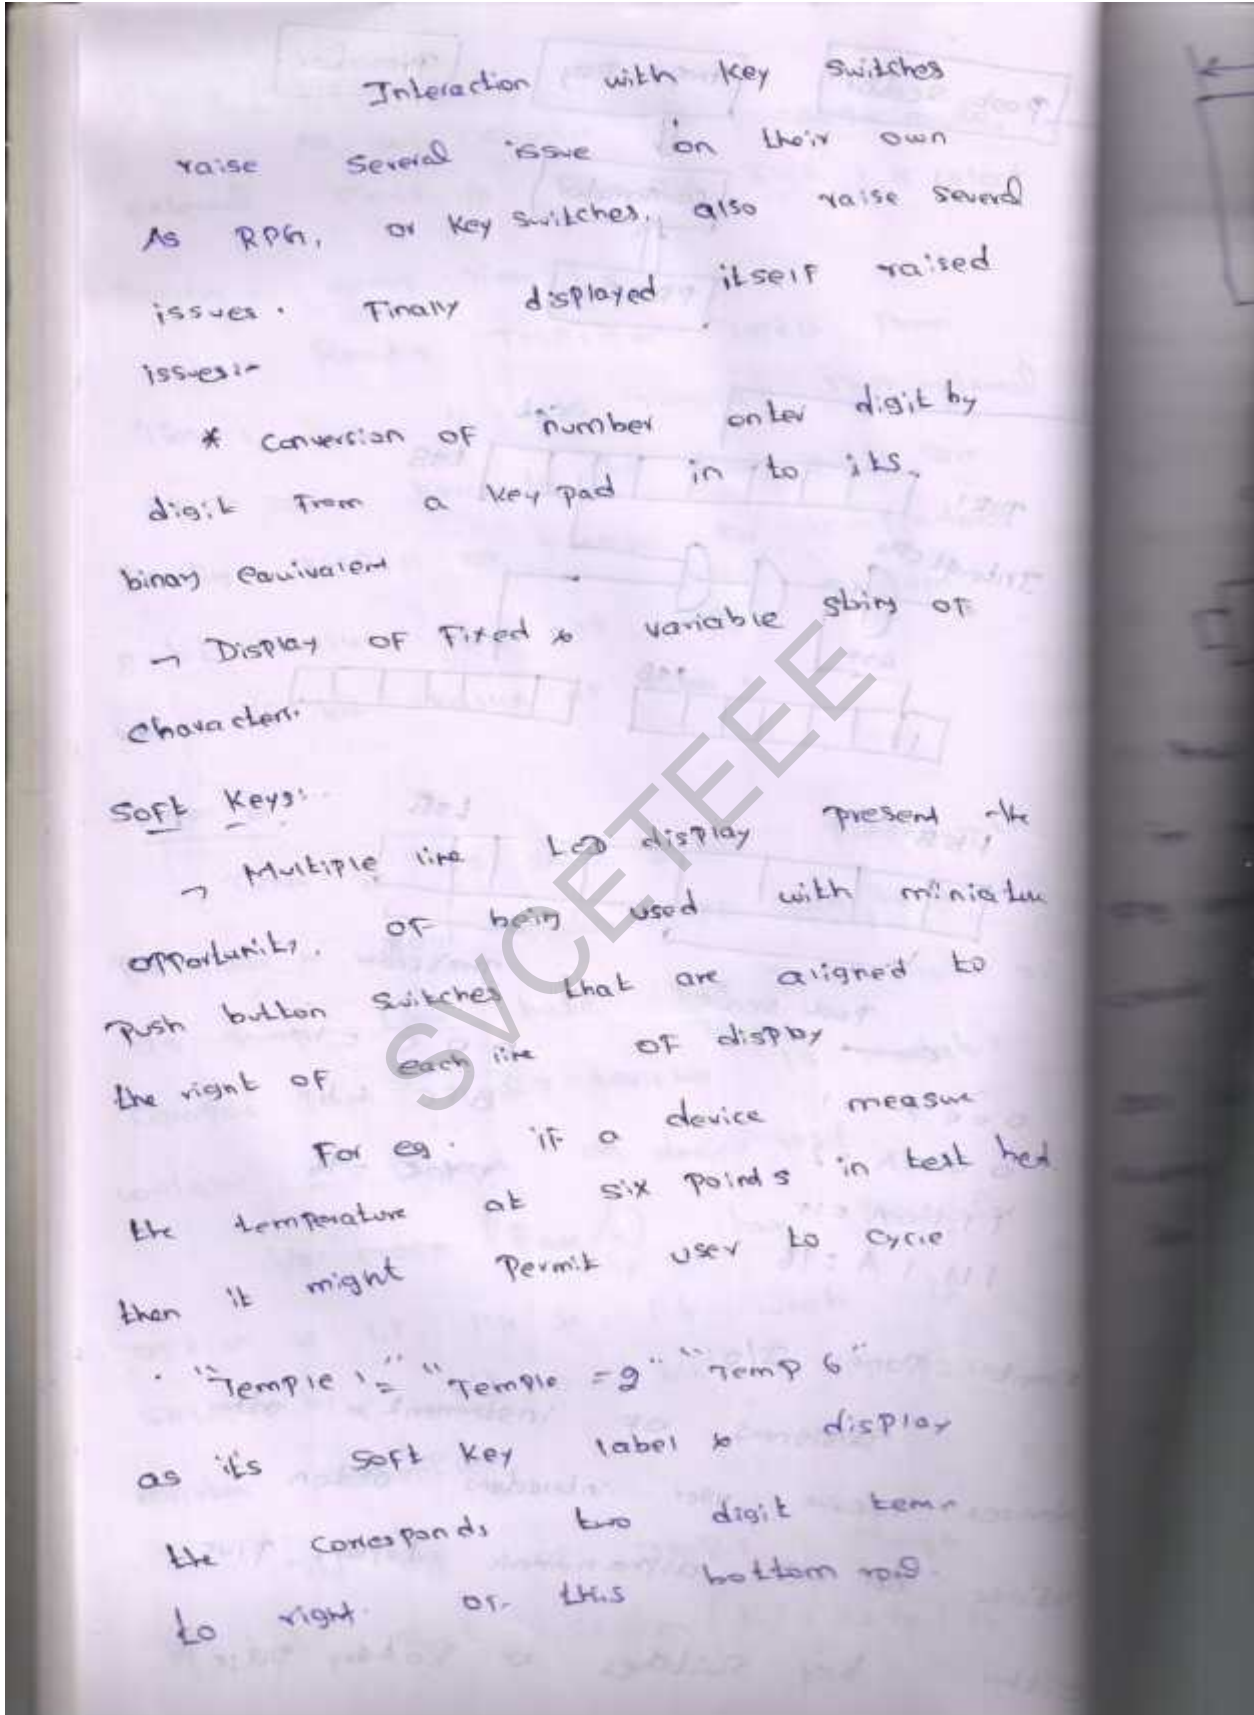 Interaction with key switches
raise several issue on their own
As RPG, or key switches, also raise several
issues. Finally displayed itself raised
issues:-
* conversion of number enter digit by
digit from a key pad in to its
binary equivalent
→ Display of Fixed & variable string of
characters.
Soft Keys:-
→ Multiple line LCD display present the
opportunity of being used with miniature
push button switches that are aligned to
the right of each line of display
For eg. if a device measure
the temperature at six points in test bed
then it might Permit user to cycle
"Temple 1=" "Temple =2" "Temp 6"
as its soft key label & display
the corresponds two digit temp
to right of this bottom
SVCETEEE